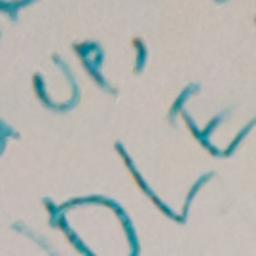 UP,
DLE